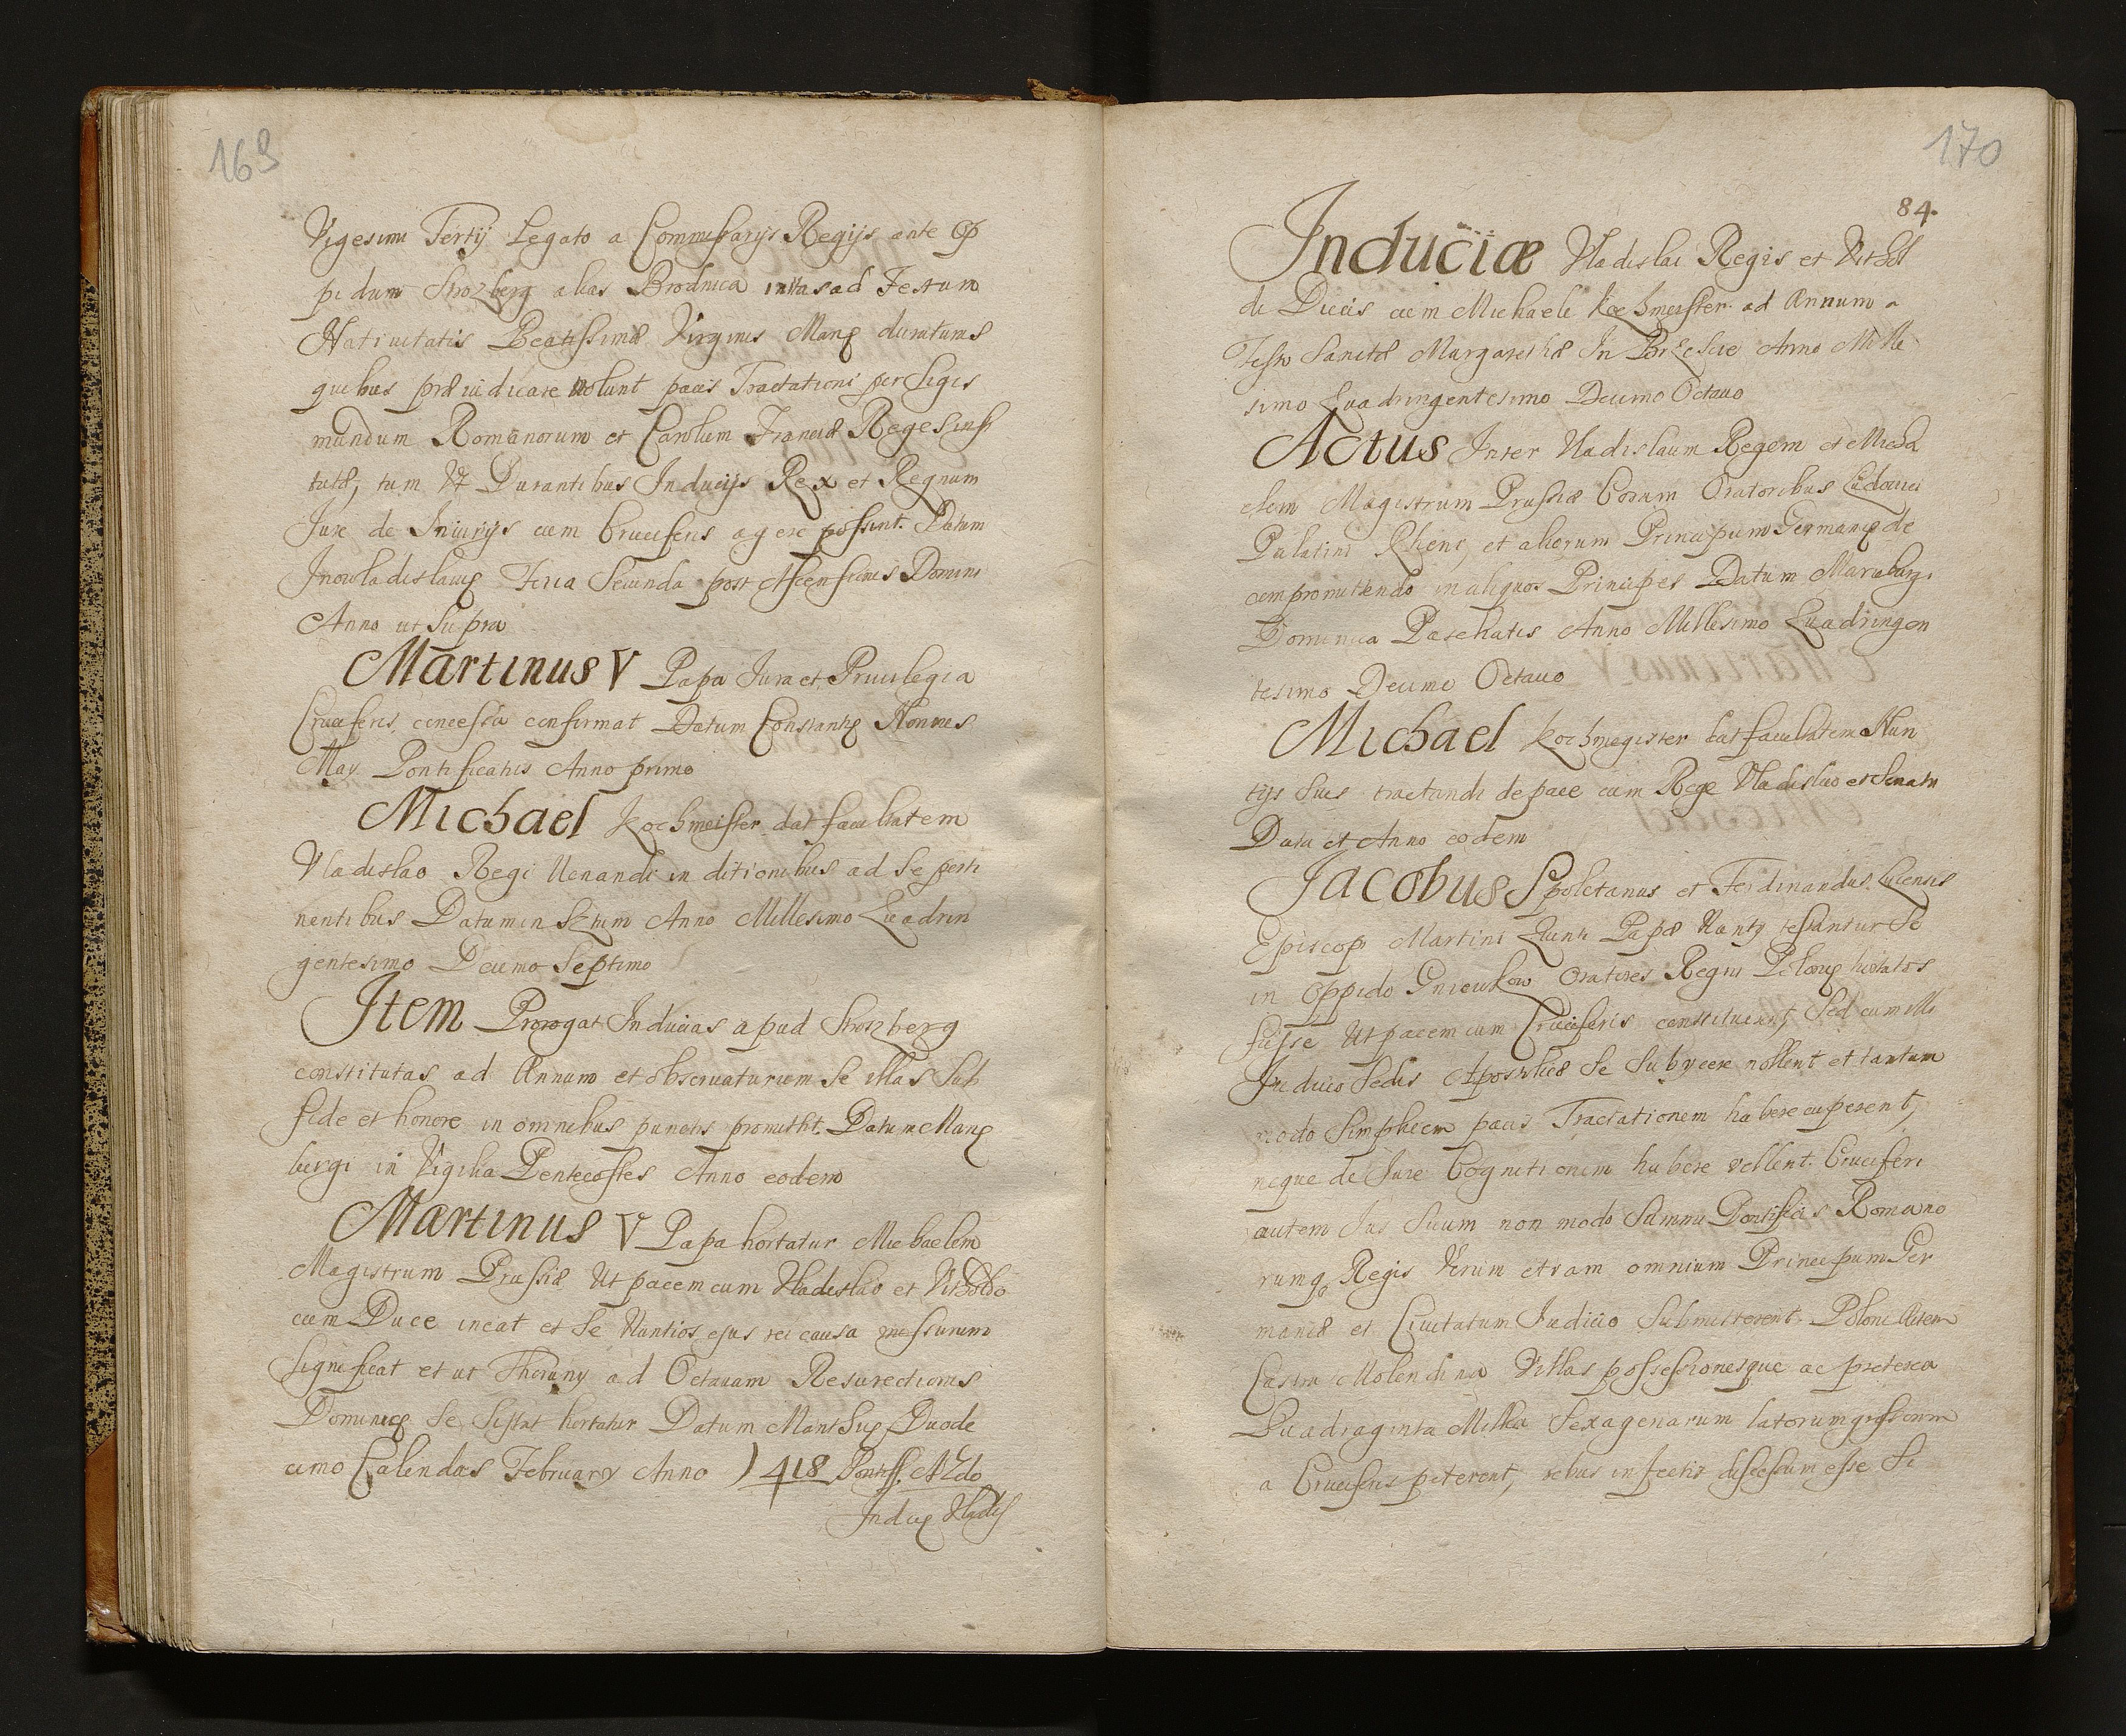 169
Vigesimi Tertij Legato a Commissarijs Regijs ante Op
pidum Strozberg alias Brodnica initas ad Festum
Nativitatis Beatissimæ Virginis Mariæ duraturas
quibus præiudicare nolunt pacis Tractationi per Sigis
mundum Romanorum et Carolum Franciæ Reges insti
tutæ, tum Ut Durantibus Inducijs Rex et Regnum
Jure de Iniurijs cum Cruciferis agere possint. Datum
Inowladislaviæ Feria Secunda post Ascensionis Domini
Anno ut Supra
Martinus V Papa Jura et Privilegia
Cruciferis concessa confirmat Datum Constantiæ Nonnis
May Pontificatus Anno primo
Michael Kochmeister dat facultatem
Vladislao Regi Venandi in ditionibus ad se perti
nentibus Datum in Sztum Anno Millesimo Quadrin
gentesimo Decimo Septimo
Item Prorogat Inducias apud Strozberg
constitutas ad Annum et observaturum Se illas Sub
fide et honore in omnibus punctis promittit. Datum Mariæ
burgi in Vigilia Pentecostes Anno eodem
Martinus V Papa hortatur Michaelem
Magistrum Prussiæ Ut pacem cum Vladislao et Vitholdo
cum Duce ineat et Se Nuntios ejus rei causa missurum
Significat et ut Thoruny ad Octavam Resurectionis
Dominicæ Se Sistat hortatur Datum Mantuæ Duode
cimo Calendas February Anno 1418 Pontiff. A 2do
Induciæ Vladis
170
84.
Induciæ Vladislai Regis et Vithol
di Ducis cum Michaele Kochmeister ad Annum a
Festo Sanctæ Margarethæ In Brzescie Anno Mille
simo Quadringentesimo Decimo Octavo
Actus Inter Vladislaum Regem et Micha
elem Magistrum Prussiæ Coram Oratoribus Ludovici
Palatini Rheni, et aliorum Principum Germaniæ de
compromittendo in aliquos Principes Datum Mariæburgi
Dominica Paschatis Anno Millesimo Quadringen
tesimo Decimo Octavo
Michael Kochmegister dat facultatem Nun
tijs Suis tractandi de pace cum Rege Vladislao et Senatu
Data et Anno eodem
Jacobus Spoletanus et Ferdinandus Lucensis
Episcopi Martini Quinti Papæ Nuntij testantur Se
in Oppido Gniewkow Oratores Regni Poloniæ hortatos
fuisse Ut pacem cum Cruciferis constituerent, Sed cum illi
Judicio Sedis Apostolicæ Se Subycere nollent et tantum
modo Simplicem pacis Tractationem habere cuperent,
neque de Jure Cognitionem habere vellent. Cruciferi
autem Jus Suum non modo Summi Pontificis Romano
rumq Regis Verum etiam omnium Principum Ger
maniæ et Civitatum Judicio Submitterent. Poloni Autem
Castra Molendina Villas possessionesque ac preterea
Quadraginta Millia Sexagenarum latorum grossorum
a Cruciferis peterent, rebus infectis discessum esse Si